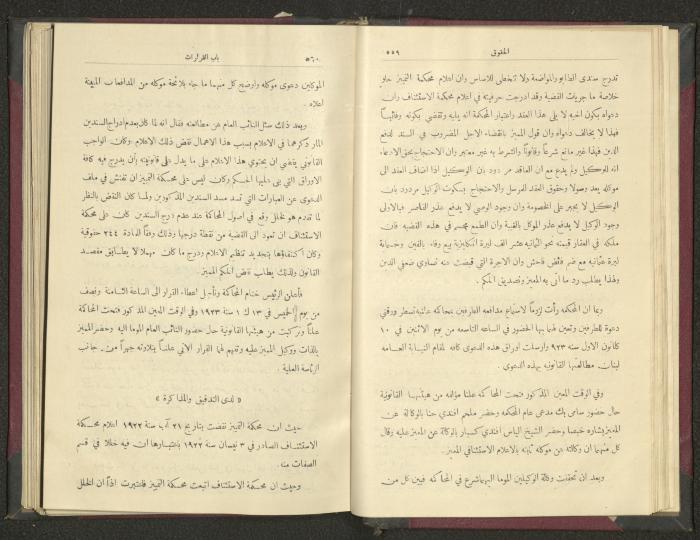 الحقوق ٥٥٩
تدرج سندي الطابو والمواضعة ولا تتخطى للاساس وان اعلام محكمة التمييز حاو
خلاصة ما جريات القضية وقد ادرجت حرفيته في اعلام محكمة الاستئناف وان
دعواه بكون اخيه لا يلي هذا العقد واعتبار المحكمة انه يليه وتقضي بكونه وقائيًا
فهذا لا يخالف دعواه وان قول المميز بانقضاء الاجل المضروب في السند لدفع
الدين فهذا غير مانع شرعاً وقانوناً والشرط به غير معتبر وان الاحتجاج بحق الادعاء
انه للوكيل ولم يدع مع ان العاقد مردود بان الوكيل اذا اضاف العقد الى
موكله يعد رسولا وحقوق العقد للمرسل والاحتجاج بسكوت الوكيل مردود بان
الوكيل لا يجبر على الخصومة وان وجود الوصي لا يدفع عذر القاصر فبالاولى
وجود الوكيل لا يدفع عذر الموكل بالغيبة وان الطمع مجسم في هذه القضيه فان
ملكه في العقار قيمته نحو الثمانيه عشر الف ليرة انكليزية بيع وفاء بالفين وخمسماية
ليرة عثمانيه مع ضم فائض فاحش وان الاجرة التي قبضت عنه تساوي ضعفي الدين
ولهذا يطلب رد ما اتى به المميز وتصديق الحكم .
وبما ان المحكمه رأت لزوماً لاستماع مدافعه الطرفين بمحاكمه علنية تسطر ورقتي
دعوة للطرفين وتعين لهما بها الحضور في الساعه التاسعه من يوم الاثنين في ١٠
كانون الاول سنة ٩٢٣ وارسلت اوراق هذه الدعوى كافه لمقام النيابة العامه
لبيان مطالعتها القانونيه بهذه الدعوى .
وفي الوقت المعين المذكور فتحت المحاكمه علنا مؤلفه من هيئتها القانونية
حال حضور سامي بك مدعي عام المحكمه وحضر ملحم افندي حنا بالوكالة عن
المميز بشاره خيصا وحضر الشيخ الياس افندي كسبار بالوكالة عن المميز عليه وقال
كل منهما ان وكالته عن موكله ثابته بالاعلام الاستئنافي المميز .
وبعد ان تحققت وكالة الوكيلين الموما اليهما شرع في المحاكمه فبين كل من
٥٦٠ باب القرارات
الموكلين دعوى موكله واوضح كل منهما ما جاء بلائحة موكله من المدافعات المبينة
اعلاه .
وبعد ذلك سئل النائب العام عن مطالعته فقال انه لما كان بعدم ادراج السندين
المار ذكرهما في الاعلام بسبب هذا الاهمال نقض ذلك الاعلام وكان الواجب
القانوني يقتضي ان يحتوي هذا الاعلام على ما يدل على قانونيته أن يدرج فيه كافة
الاوراق التي بني عليها الحكم وكان ليس على محكمة التمييز ان تفتش في ملف
الدعوى عن العبارات التي تسد مسد السندين المذكورين ولما كان النقض بالنظر
لما تقدم هو لخلل وقع في اصول المحاكمة عند عدم درج السندين كان على محكمة
الاستئناف ان تعود الى القضية من نقطة درجها وذلك وفقاً للمادة ٢٤٤ حقوقية
وكان اكتفاؤها بتجديد تنظيم الاعلام ودرج ما كان مهملا لا يطابق مقصد
القانون ولذلك يطلب نقض الحكم المميز .
فأعلن الرئيس ختام المحاكمة وتأجيل اعطاء القرار الى الساعة الثامنة ونصف
من يوم الخميس في ١٣ ك ١ سنة ١٩٢٣ وفي الوقت المعين المذكور فتحت المحاكمة
علناً وتركبت من هيئتها القانونية حال حضور النائب العام الموما اليه وحضر المميز
بالذات ووكيل المميز عليه وتفهم لهما القرار الاتي علناً بتلاوته جهراً من جانب
الرئاسة العلية .
« لدى التدقيق والمذاكرة »
حيث ان محكمة التمييز نقضت بتاريخ ٢١ آب سنة ١٩٢٢ اعلام محكمة
الاستئناف الصادر في ٣ نيسان سنة ١٩٢٢ باعتبارها ان فيه خللا في قسم
الصفات منه .
وحيث ان محكمة الاستئناف اتبعت محكمة التمييز فاعتبرت اذاً ان الخلل